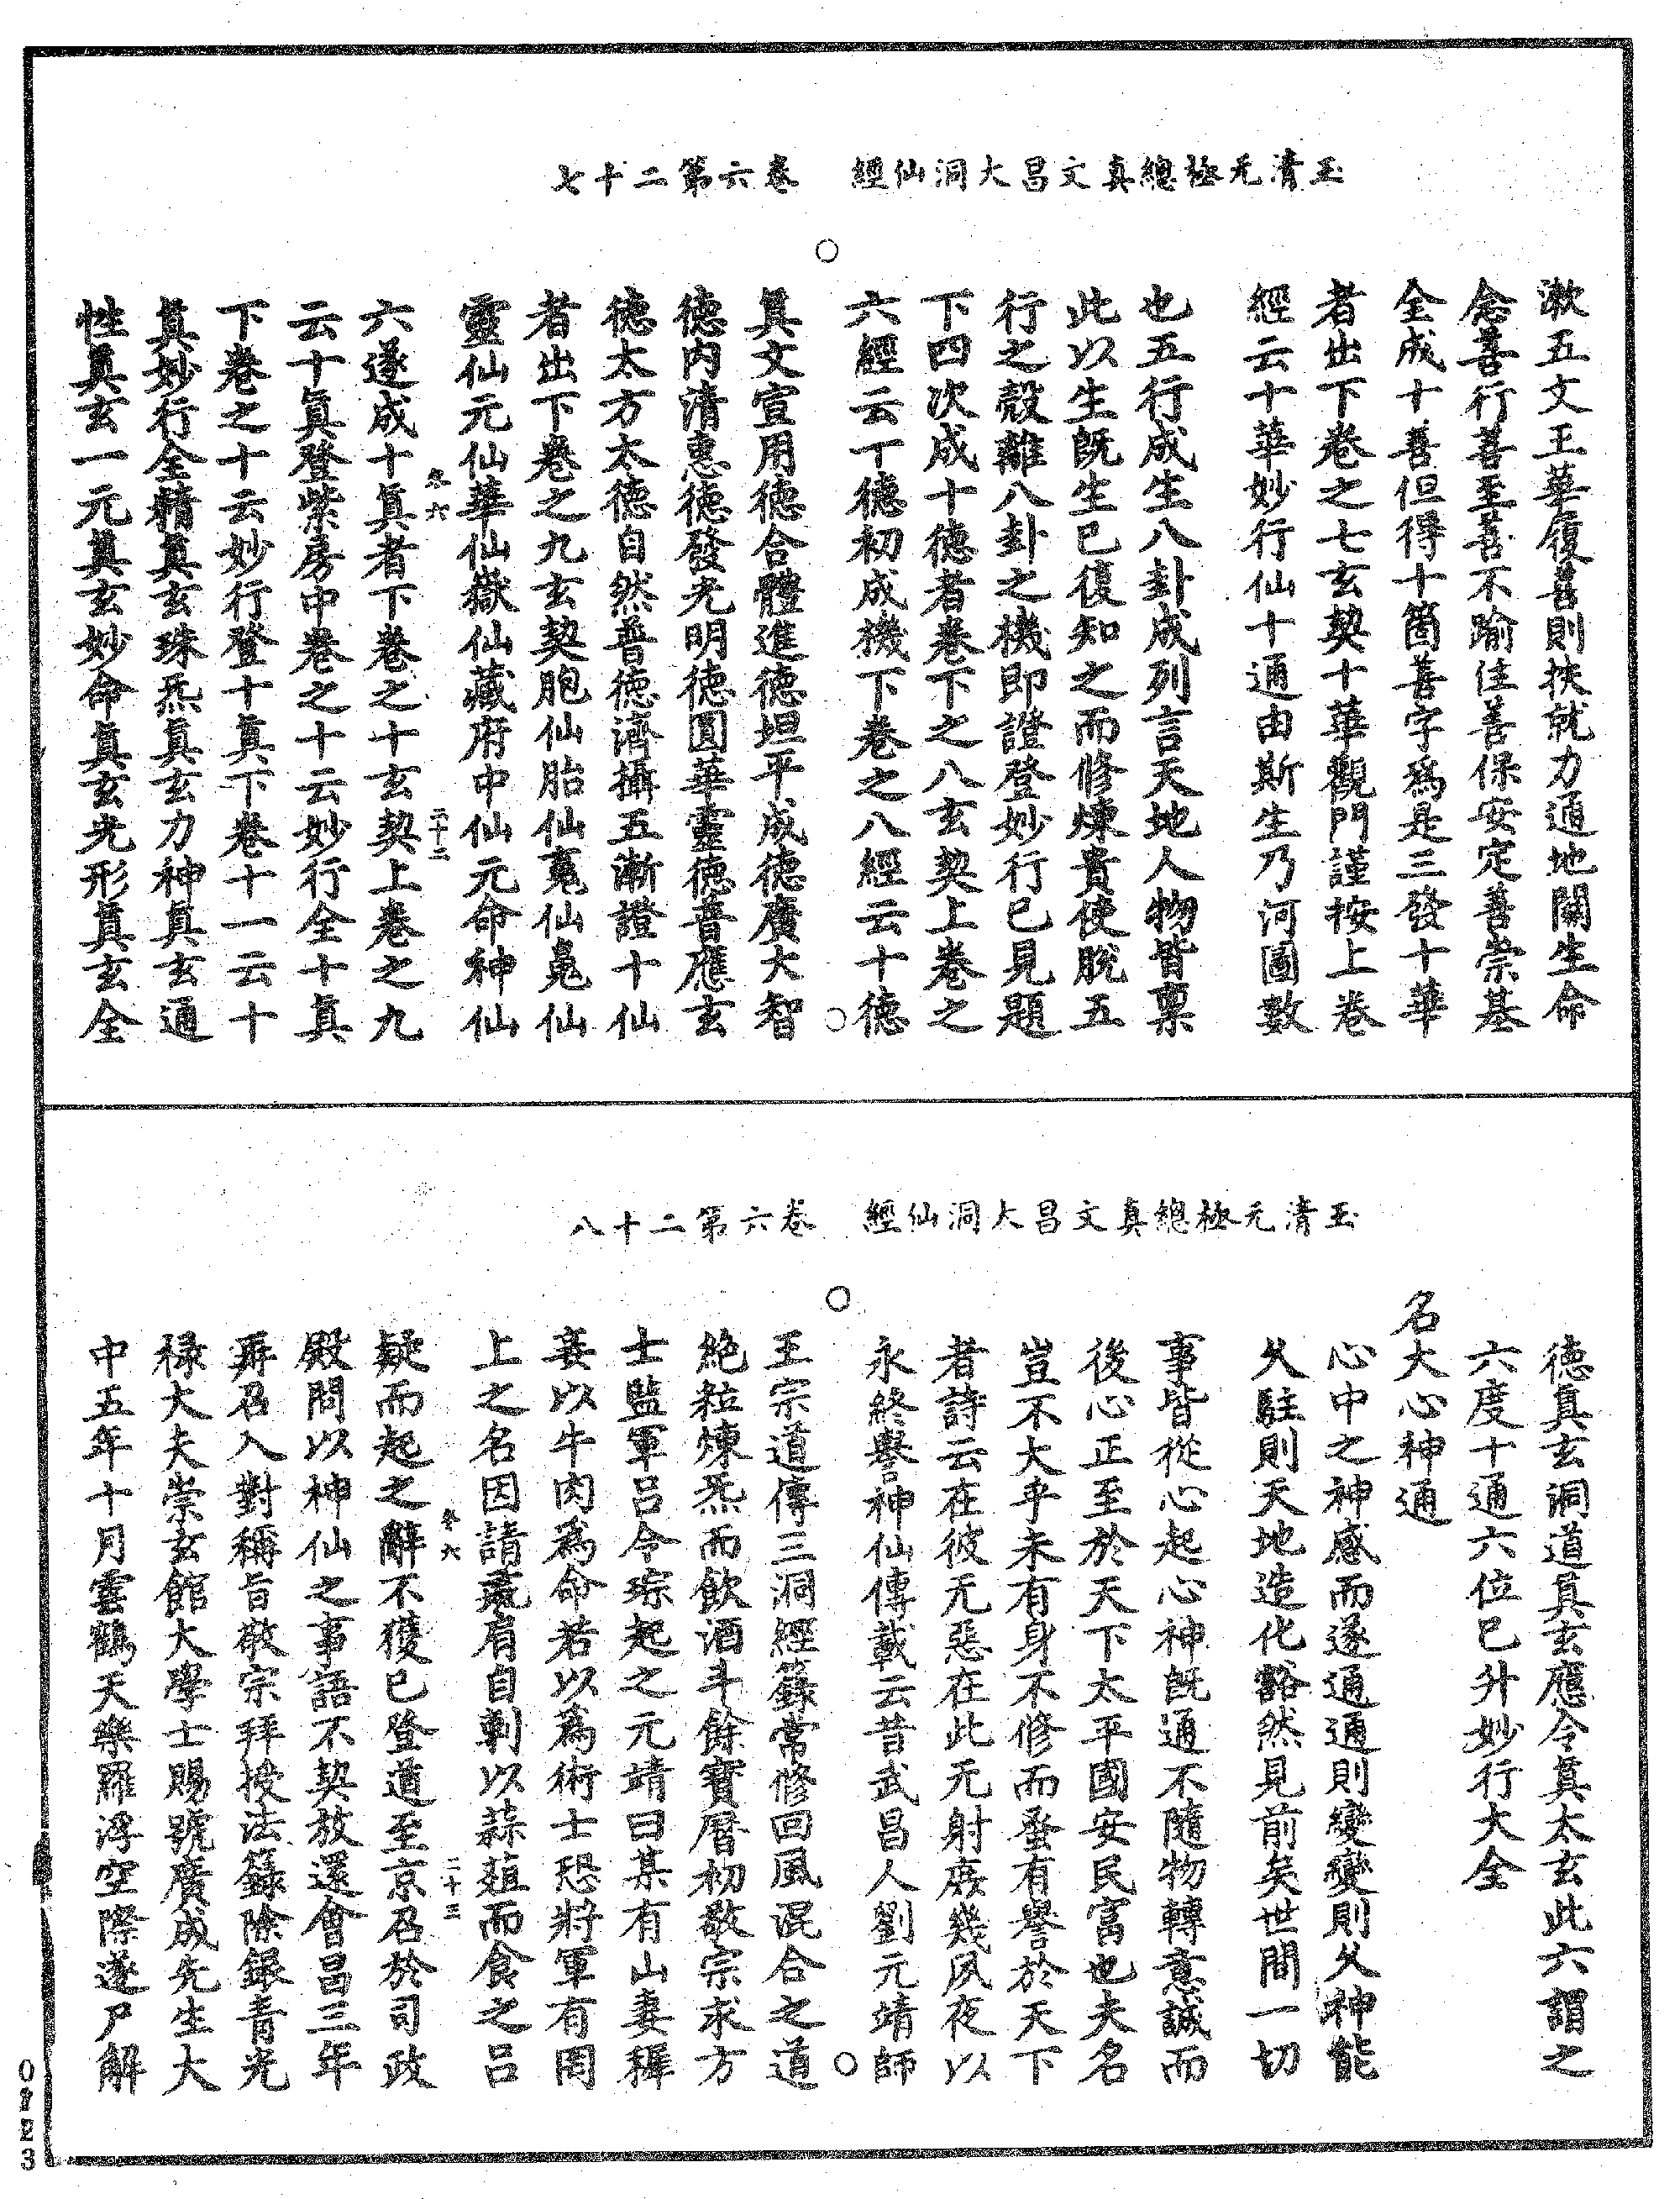 玉清元極總真文昌大洞仙經　卷六第二十七
漱五文王華履善則扶就力通地關生命
念善行善至善不踰住善保安定善崇基
全成十善但得十箇善字爲是三發十華
者出下卷之七玄契十華觀門謹按上卷
經云十華妙行仙十通由斯生乃河圖數
也五行成生八卦成列言天地人物皆稟
此以生旣生已復知之而修煉貴使脫五
行之殼離八卦之機即證登妙行已見題
下四次成十德者卷下之八玄契上卷之
六經云丁德初成機下卷之八經云十德
真文宣用德合體進德坦平成德廣大智
德內清惠德發光明德圓華靈德普應玄
德太方太德自然普德濟攝五漸證十仙
者出下卷之九玄契胞仙胎仙䰟仙鬼仙
靈仙元仙華仙嶽仙藏府中仙元命神仙
六遂成十真者下卷之十玄契上卷之九
云十真登紫房中卷之十云妙行全十真
下卷之十云妙行登十真下卷十一云十
真妙行全精真玄珠炁真玄力神真玄通
性真玄一元真玄妙命真玄光形真玄全
卷六
二十二
玉清元極總真文昌大洞仙經　卷六第二十八
德真玄洞道真玄應令真太玄此六謂之
六度十通六位已升妙行大全
名大心神通
心中之神感而遂通通則變變則久神能
久駐則天地造化豁然見前矣世間一切
事皆從心起心神旣通不隨物轉意誠而
後心正至於天下太平國安民富也夫名
豈不大乎未有身不修而蚤有譽於天下
者詩云在彼无惡在此无射庶幾夙夜以
永終譽神仙傳載云昔武昌人劉元靖師
王宗道傳三洞經籙常修回風混合之道
絶粒煉炁而飲酒斗餘寶曆初敬宗求方
士監軍呂令琮起之元靖曰某有山妻穉
妾以牛肉爲命若以爲術士恐將軍有罔
上之名因請彘肩自剸以蒜葅而食之呂
疑而起之辭不獲已登道至京召於司政
殿問以神仙之事語不契放還會昌三年
再召入對稱旨敬宗拜授法籙除銀青光
祿大夫崇玄館大學士賜號廣成先生大
中五年十月雲鶴天樂羅浮空際遂尸解
卷六
二十三
0123